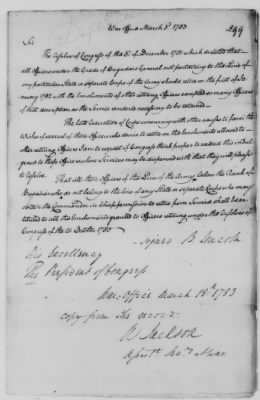 War Office March 3d 1783
299
Sir
The Resolve of Congress of the 31 of December 1781 which directed that
all Officers under the Grade of Brigadiers General not pertaining to the Line of
any particular State or separate Corps of the Army should retire on the first of Jan
uary 1782 with the Emoluments of other retiring Officers excepted so many Officers of
that description as the Service rendered necessary to be retained
The late reduction of Corps concurring with other causes to favor the
Wishes of several of those Officers who desire to retire on the Emoluments allowed
other retiring Officers I am to request if Congress think proper to extend this in
gence to those Officers whose Services may be dispensed with that they will please
to Resolve
That all those Officers of the Line of the Army below the Rank of
Brigadier who do not belong to the line of any State or separate Corps who may
obtain the Commander in Chiefs permission to retire from Service shall be en
titled to all the Emoluments granted to Officers retiring under the Resolves of
Congress of the 21 October 1780
signed B Lincoln
His Excellency
The President of Congress
War Office March 18th 1783
copy from the record
W Jackson
Assist. Secy. War